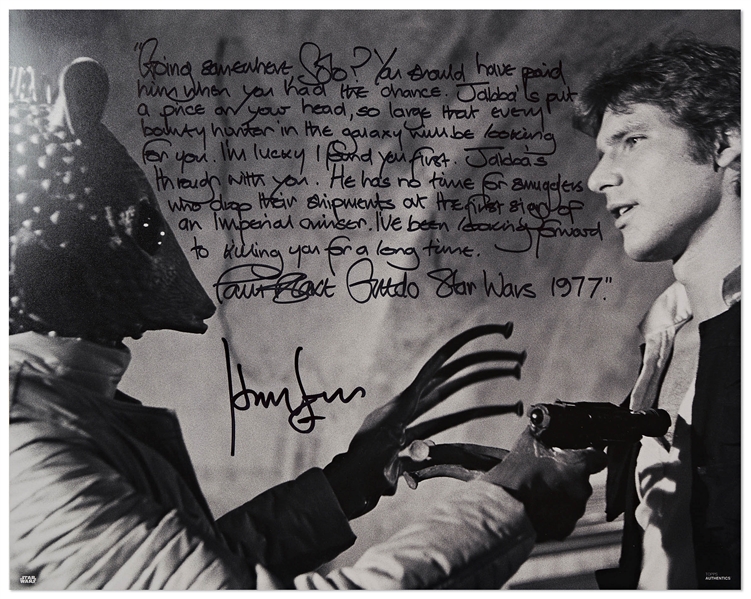 "Going somewhere, Solo? You should have paid
him when you had the chance. Jabba's put
a price on your head, so large that every
bounty hunter in the galaxy will be looking
for you. I'm lucky I found you first. Jabba's
through with you. He has no time for smugglers
who drop their shipments at the first sign of
an Imperial cruiser. I've been looking forward
to killing you for a long time.
Paul Blake Greedo Star Wars 1977."
STAR
WARS
TOPPS
AUTHENTICS